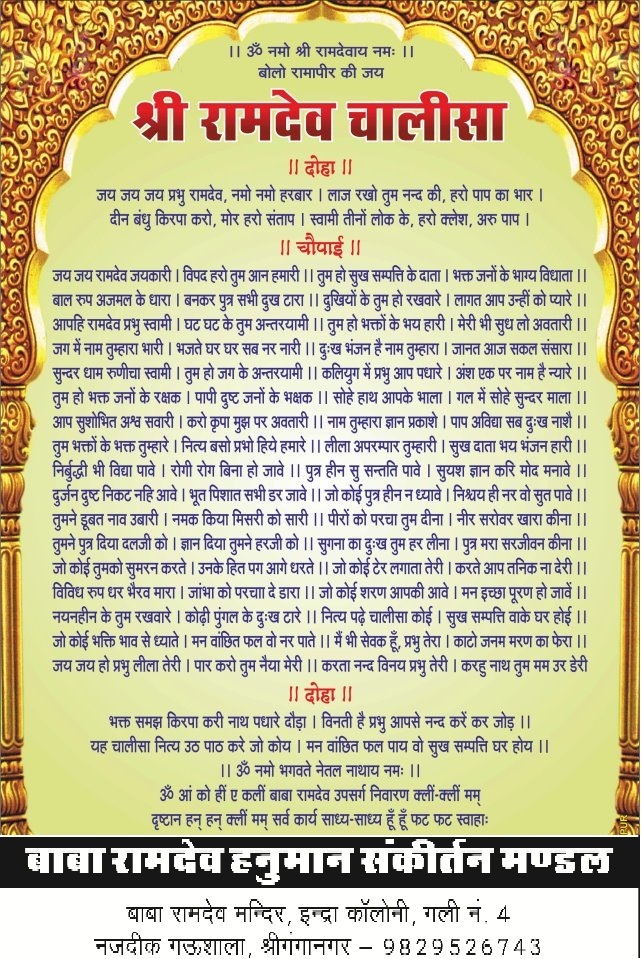 ।। ॐ नमो श्री रामदेवाय नमः ।।
बोलो रामापीर की जय
श्री रामदेव चालीसा
।। दोहा ।।
जय जय जय प्रभु रामदेव, नमो नमो हरबार । लाज रखो तुम नन्द की, हरो पाप का भार ।
दीन बंधु किरपा करो, मोर हरो संताप । स्वामी तीनों लोक के, हरो क्लेश, अरु पाप ।
।। चौपाई ।।
जय जय रामदेव जयकारी । विपद हरो तुम आन हमारी ।। तुम हो सुख सम्पत्ति के दाता । भक्त जनों के भाग्य विधाता ।।
बाल रुप अजमल के धारा । बनकर पुत्र सभी दुख टारा ।। दुखियों के तुम हो रखवारे । लागत आप उन्हीं को प्यारे ।।
आपहि रामदेव प्रभु स्वामी । घट घट के तुम अन्तरयामी ।। तुम हो भक्तों के भय हारी । मेरी भी सुध लो अवतारी ।।
जग में नाम तुम्हारा भारी । भजते घर घर सब नर नारी ।। दुःख भंजन है नाम तुम्हारा । जानत आज सकल संसारा ।।
सुन्दर धाम रुणीचा स्वामी । तुम हो जग के अन्तरयामी ।। कलियुग में प्रभु आप पधारे । अंश एक पर नाम है न्यारे ।।
तुम हो भक्त जनों के रक्षक । पापी दुष्ट जनों के भक्षक ।। सोहे हाथ आपके भाला । गल में सोहे सुन्दर माला ।।
आप सुशोभित अश्व सवारी । करो कृपा मुझ पर अवतारी ।। नाम तुम्हारा ज्ञान प्रकाशे । पाप अविद्या सब दुःख नाशै ।।
तुम भक्तों के भक्त तुम्हारे । नित्य बसो प्रभो हिये हमारे ।। लीला अपरम्पार तुम्हारी । सुख दाता भय भंजन हारी ।।
निर्बुद्धी भी विद्या पावे । रोगी रोग बिना हो जावे ।। पुत्र हीन सु सन्तति पावे । सुयश ज्ञान करि मोद मनावे ।।
दुर्जन दुष्ट निकट नहि आवे । भूत पिशात सभी डर जावे ।। जो कोई पुत्र हीन न ध्यावे । निश्चय ही नर वो सुत पावे ।।
तुमने डूबत नाव उबारी । नमक किया मिसरी को सारी ।। पीरों को परचा तुम दीना । नीर सरोवर खारा कीना ।।
तुमने पुत्र दिया दलजी को । ज्ञान दिया तुमने हरजी को ।। सुगना का दुःख तुम हर लीना । पुत्र मरा सरजीवन कीना ।।
जो कोई तुमको सुमरन करते । उनके हित पग आगे धरते ।। जो कोई टेर लगाता तेरी । करते आप तनिक ना देरी ।।
विविध रुप धर भैरव मारा । जांभा को परचाा दे डारा ।। जो कोई शरण आपकी आवे । मन इच्छा पूरण हो जावें ।।
नयनहीन के तुम रखवारे । कोढ़ी पुंगल के दुःख टारे ।। नित्य पढ़े चालीसा कोई । सुख सम्पत्ति वाके घर होई ।।
जो कोई भक्ति भाव से ध्याते । मन वांछित फल वो नर पाते ।। मैं भी सेवक हूँ, प्रभु तेरा । काटो जनम मरण का फेरा ।।
जय जय हो प्रभु लीला तेरी । पार करो तुम नैया मेरी ।। करता नन्द विनय प्रभु तेरी । करहु नाथ तुम मम उर डेरी
।। दोहा ।।
भक्त समझ किरपा करी नाथ पधारे दौड़ा । विनती है प्रभु आपसे नन्द करें कर जोड़ ।।
यह चालीसा नित्य उठ पाठ करे जो कोय । मन वांछित फल पाय वो सुख सम्पत्ति घर होय ।।
।। ॐ नमो भगवते नेतल नाथाय नमः ।।
ॐ आं को हीं ए कलीं बाबा रामदेव उपसर्ग निवारण क्लीं-क्लीं मम्
दृष्टान हन् हन् क्लीं मम् सर्व कार्य साध्य-साध्य हूँ हूँ फट फट स्वाहाः
बाबा रामदेव हनुमान संकीर्तन मण्डल
बाबा रामदेव मन्दिर, इन्द्रा कॉलोनी, गली नं. 4
नजदीक गऊशाला, श्रीगंगानगर – 9829526743